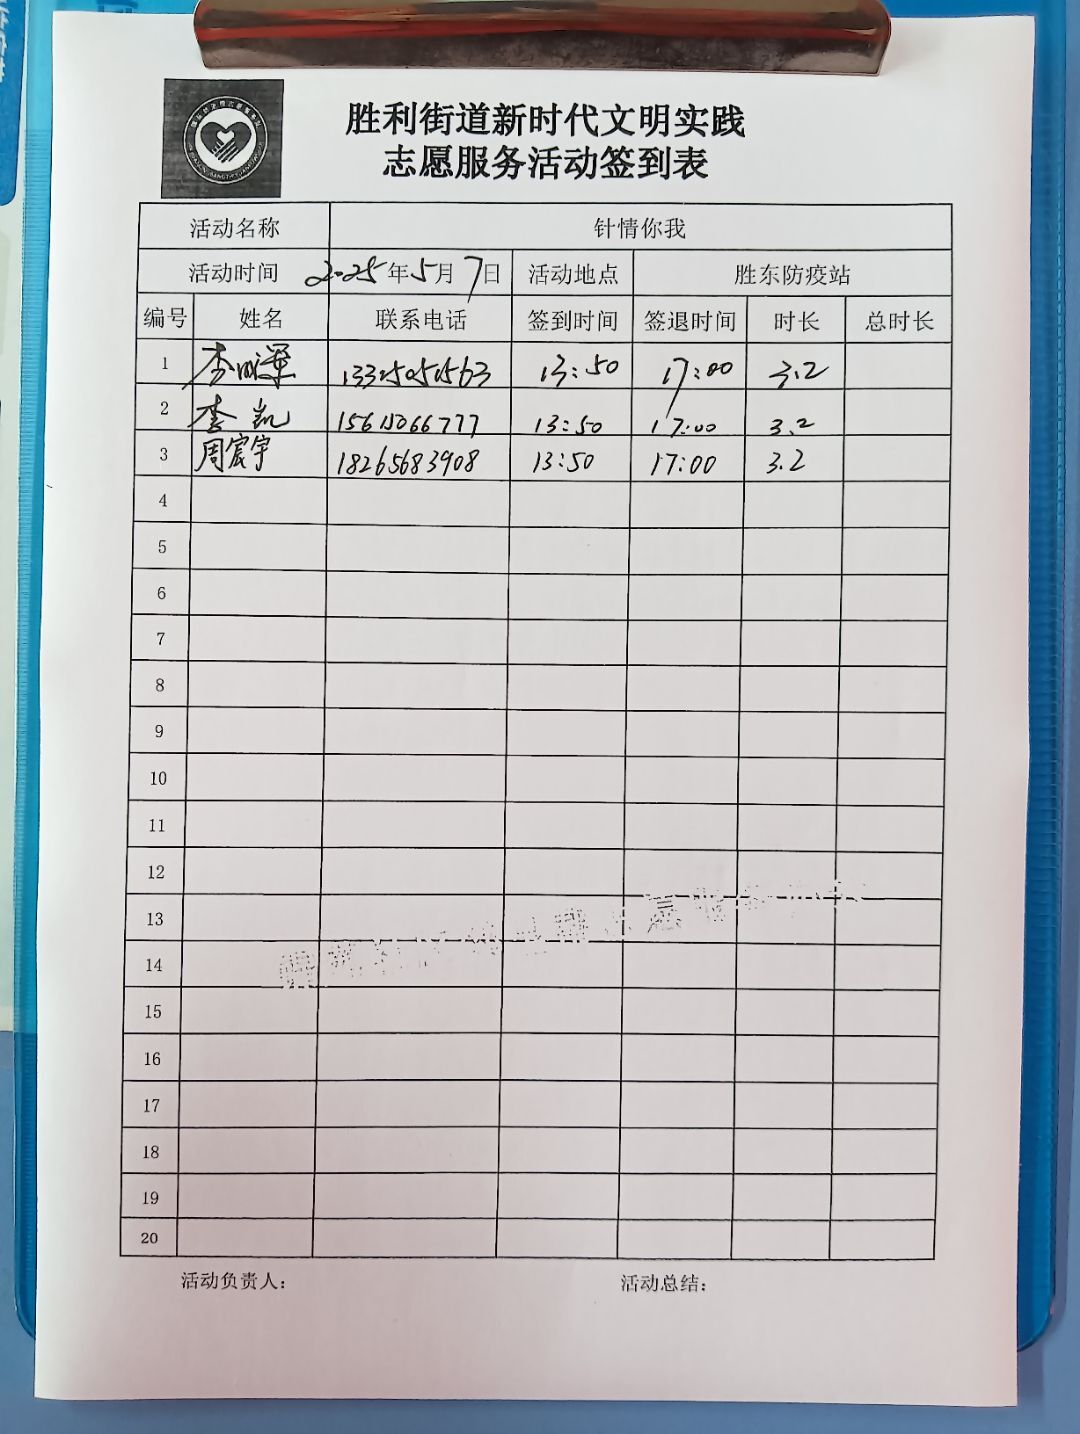 胜利街道新时代文明实践
志愿服务活动签到表
活动名称 针情你我
活动时间 2025年5月7日 活动地点 胜东防疫站
编号 姓名 联系电话 签到时间 签退时间 时长 总时长
1 李 13325051563 13:50 17:00 3.2
2 李凯 15615066777 13:50 17:00 3.2
3 周宸宇 18265683908 13:50 17:00 3.2
4
5
6
7
8
9
10
11
12
13
14
15
16
17
18
19
20
活动负责人: 活动总结: